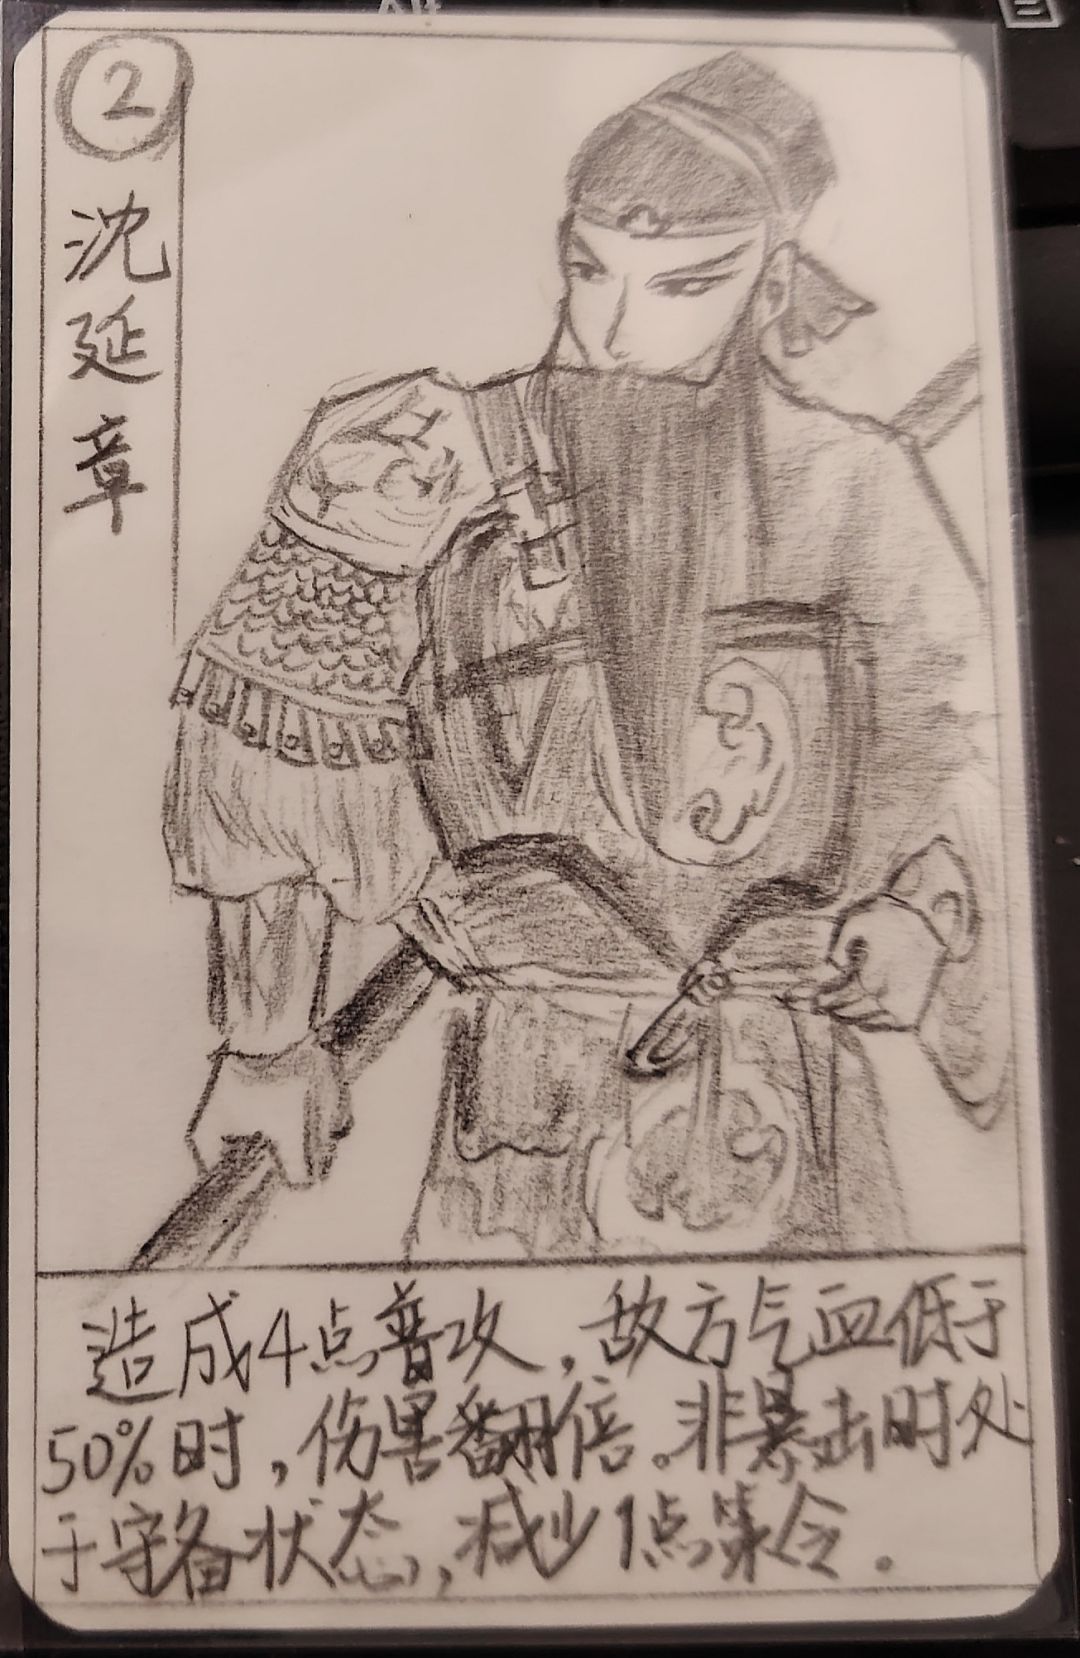 2
沈延章
造成4点普攻，敌方气血低于
50%时，伤害翻倍。非暴击时处
于守备状态，减少1点策令.